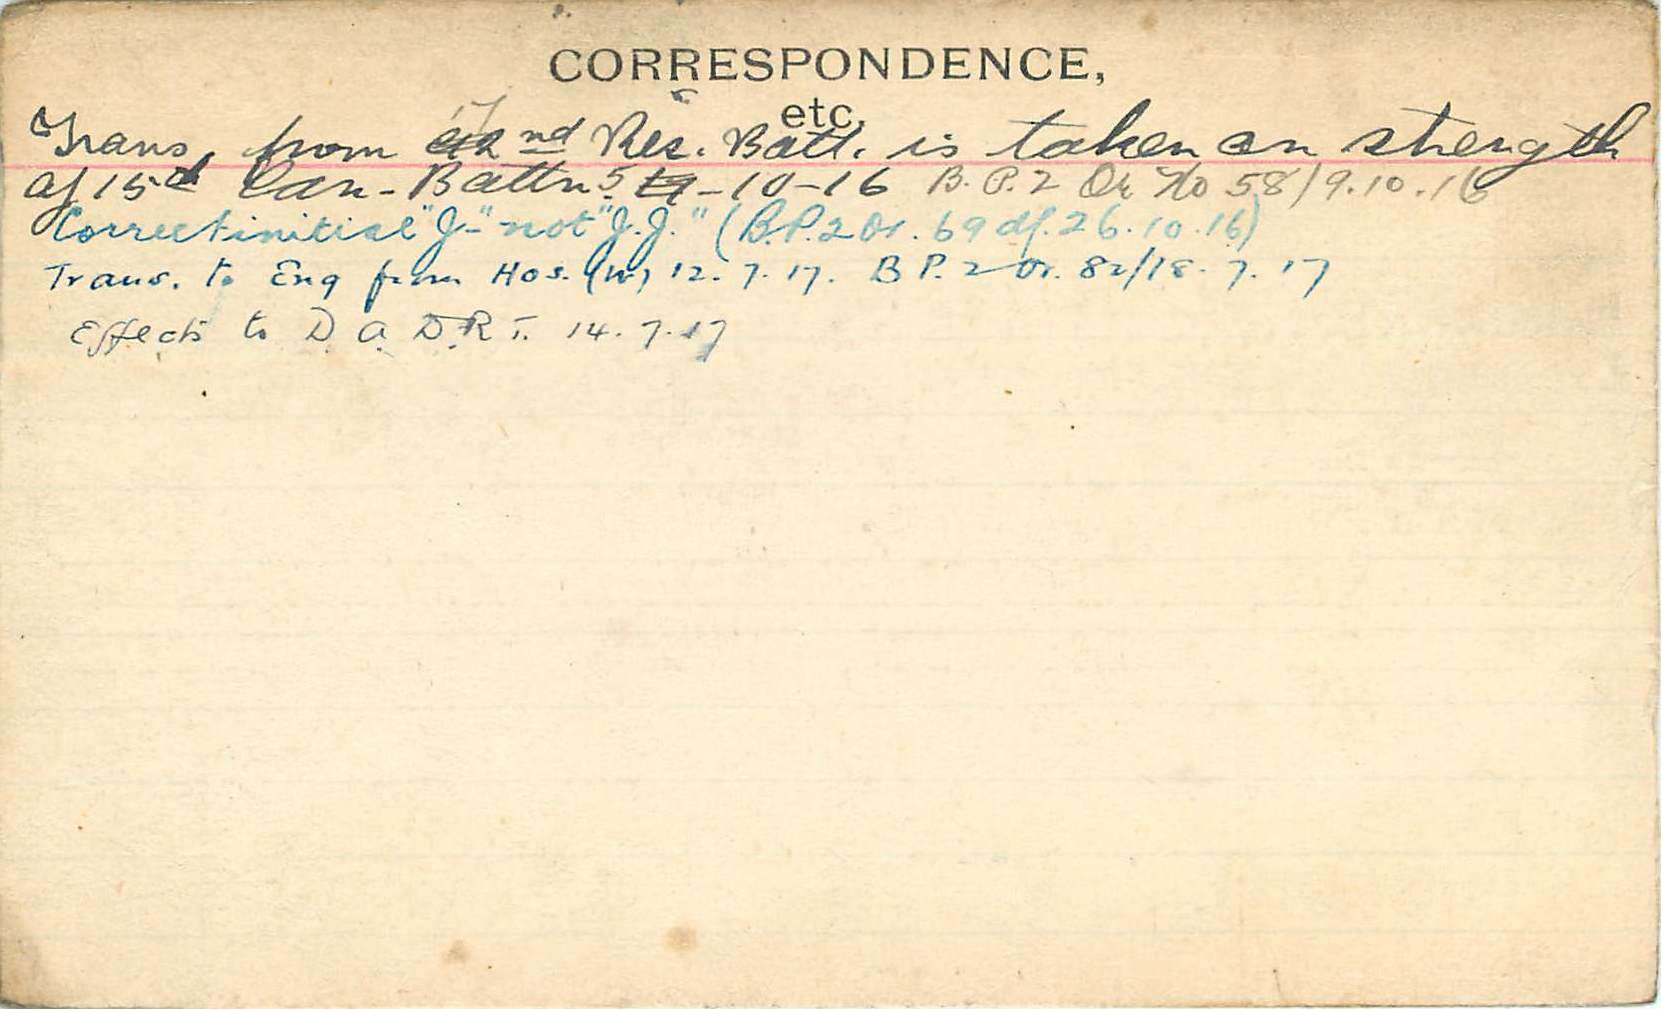 CORRESPONDENCE,
etc.
Trans, from 17 nd Res. Batt. is taken on strength
of 15th Can - Battn. 5 - 10 - 16 B.P.2 Or No 58/9.10.16
Correct initial "J-" not "J.J." (B.P.2 Or. 69 df. 26.10.16)
Trans. to Eng from Hos. (W) 12.7.17. B P. 2 Or. 82/18.7.17
Effects to D.A.D.R.T. 14.7.17